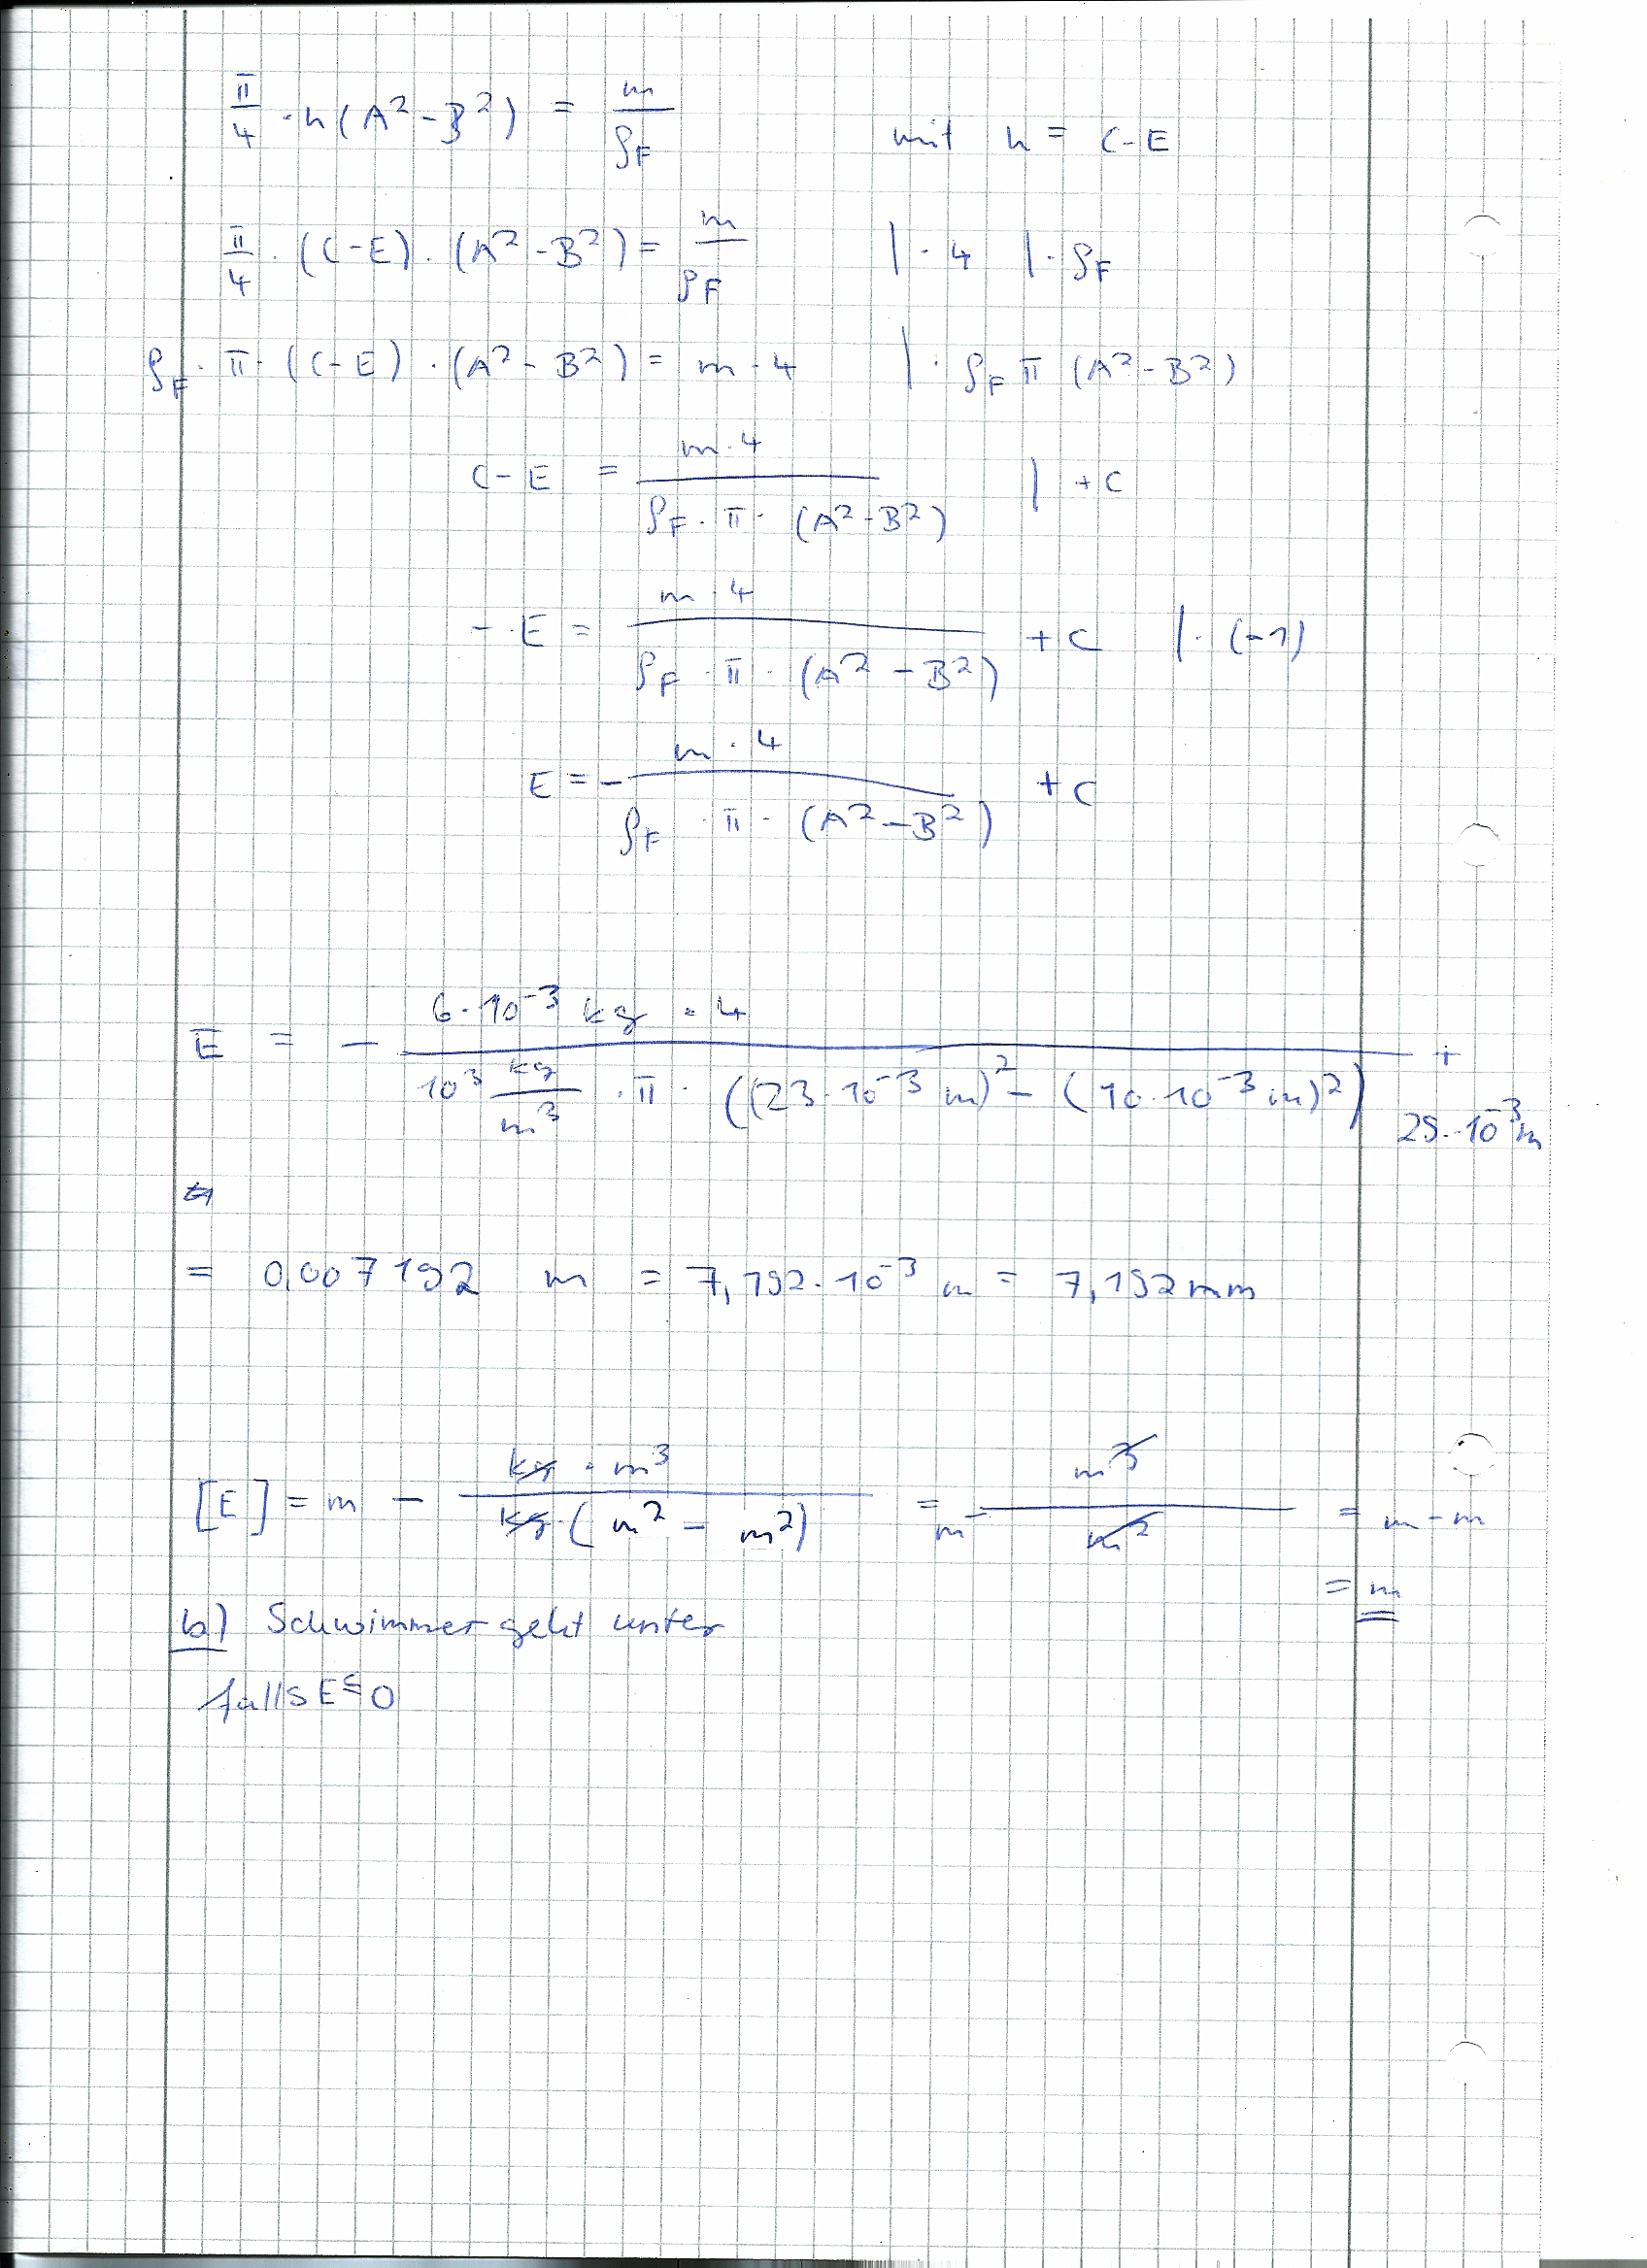 π/4 · h (A² - B²) = m/ρ_F mit h = C-E
π/4 · (C-E) · (A² - B²) = m/ρ_F | · 4 | · ρ_F
ρ_F · π · (C-E) · (A² - B²) = m · 4 | : ρ_F π (A² - B²)
C-E = m · 4 / ρ_F · π · (A² - B²) | +C
- E = m · 4 / ρ_F · π · (A² - B²) + C | · (-1)
E = - m · 4 / ρ_F · π · (A² - B²) + C
E = - 6 · 10⁻³ kg · 4 / 10³ kg/m³ · π · ((23 · 10⁻³ m)² - (10 · 10⁻³ m)²) + 25 · 10⁻³ m
= 0,007192 m = 7,192 · 10⁻³ m = 7,192 mm
[E] = m - kg · m³ / kg (m² - m²) = m - m³ / m² = m - m
= m
b) Schwimmer geht unter
falls E ≤ 0